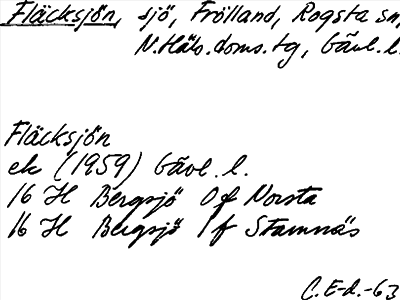 Fläcksjön, sjö, Frölland, Rogsta sn,
N.Häls.doms.tg, Gävl.l.
Fläcksjön
ek (1959) Gävl. l.
16 H Bergsjö 0f Norsta
16 H Bergsjö 1f Stamnäs
C.E-d.-63